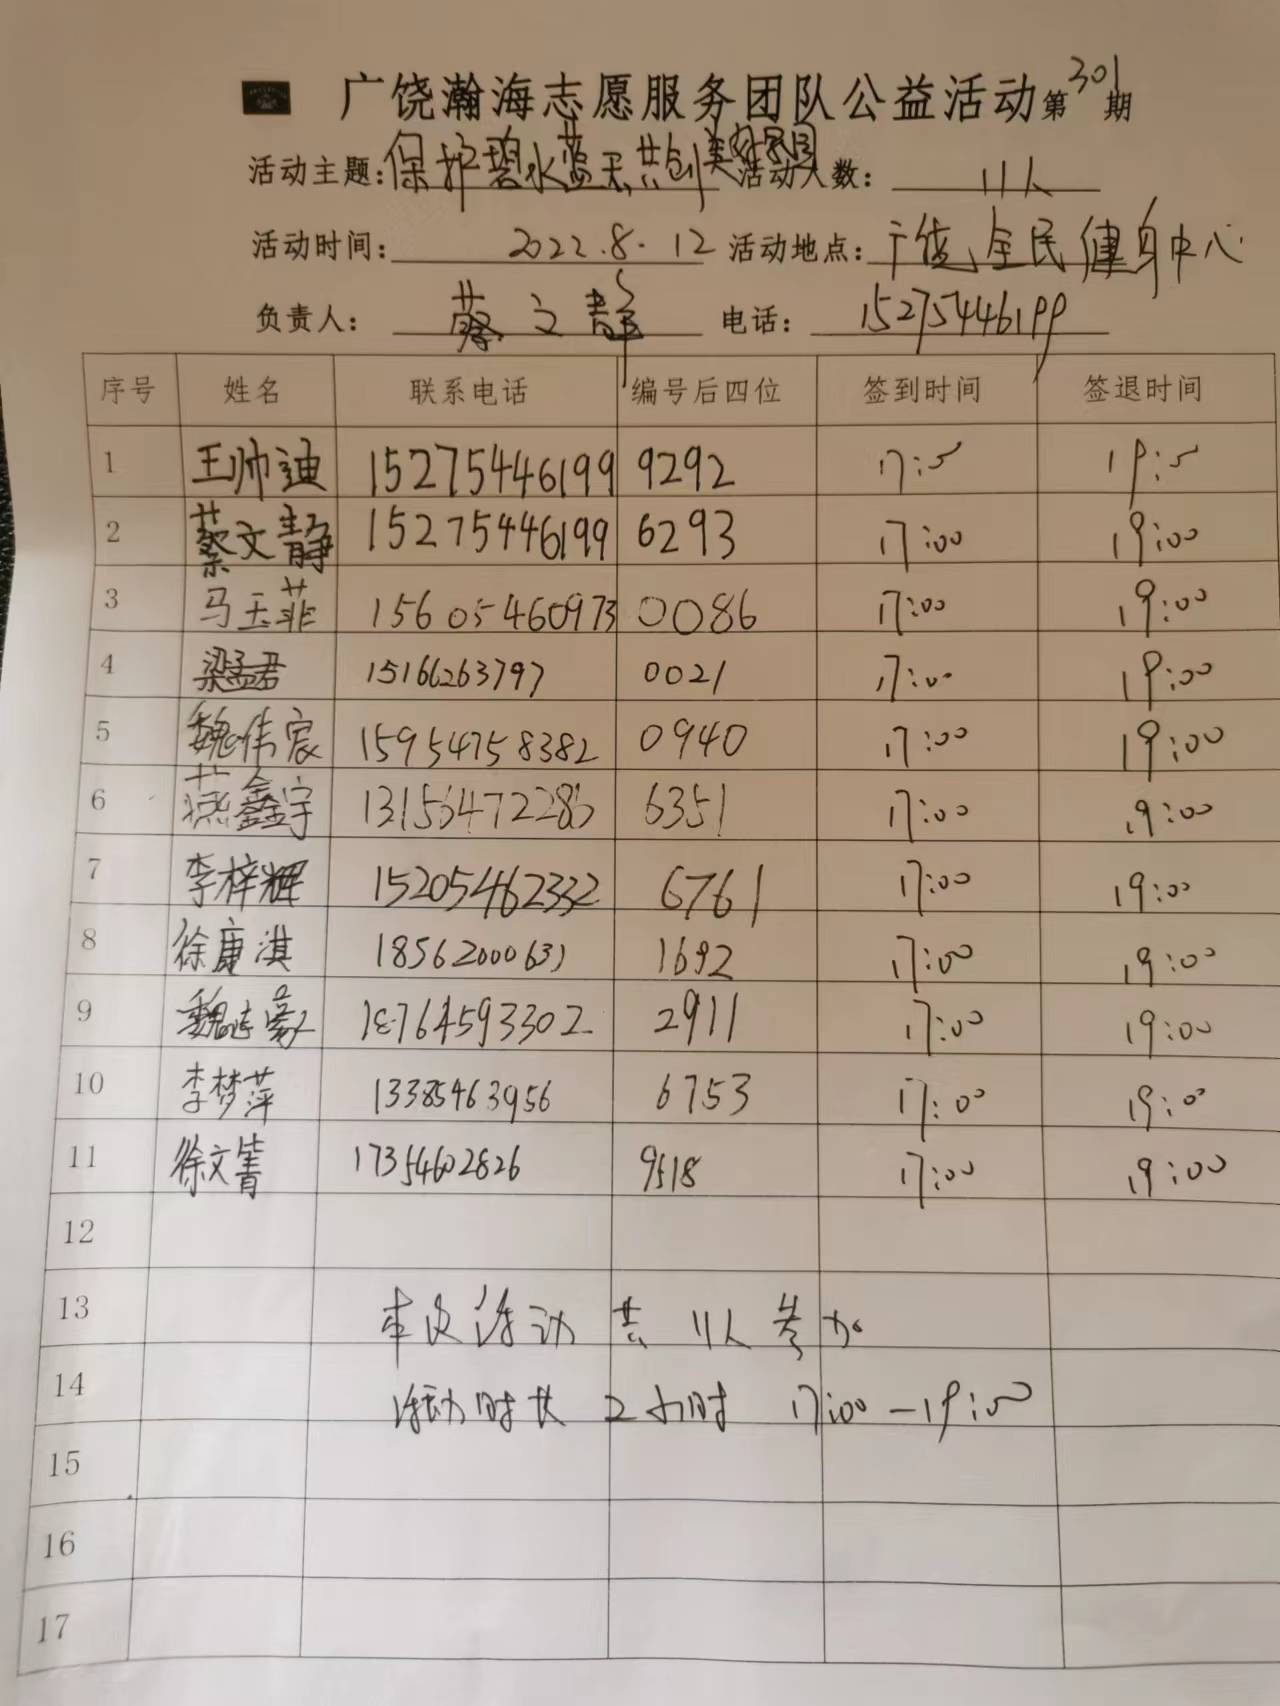 广饶瀚海志愿服务团队公益活动第301期
活动主题:保护碧水蓝天,共创美好家园 活动人数: 11人
活动时间: 2022.8.12 活动地点:广饶全民健身中心
负责人: 蔡文静 电话: 15275446199
序号 姓名 联系电话 编号后四位 签到时间 签退时间
1 王帅迪 15275446199 9292 17:00 19:00
2 蔡文静 15275446199 6293 17:00 19:00
3 马玉菲 15605460973 0086 17:00 19:00
4 梁孟君 15166263797 0021 17:00 19:00
5 魏伟宸 15954758382 0940 17:00 19:00
6 燕鑫宇 13156472286 6351 17:00 19:00
7 李梓辉 15205462332 6761 17:00 19:00
8 徐康淇 18562000631 1692 17:00 19:00
9 魏志豪 18764593302 2911 17:00 19:00
10 李梦萍 13385463956 6753 17:00 19:00
11 徐文箐 17354602826 9518 17:00 19:00
12
13 本次活动 共 11人参加
14 活动时长 2小时 17:00-19:00
15
16
17